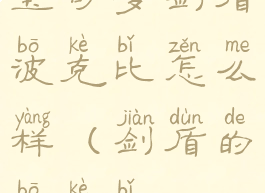 宝可梦剑盾
bō kè bǐ zěn me
波克比怎么
yàng jiàn dùn de
样（剑盾的
bō kè bǐ